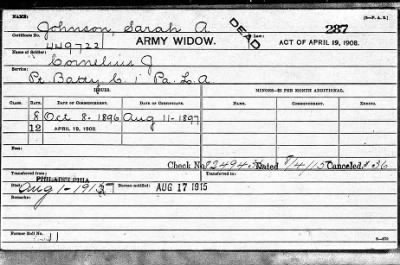 NAME: Johnson, Sarah A. (3-P.A.S.)
Certificate No. 449722 ARMY WIDOW. DEAD 287
ACT OF APRIL 19, 1908.
Name of Soldier: Cornelius J
Service: Pt Batty C. 1 Pa. L. A
ISSUES. MINORS—$2 PER MONTH ADDITIONAL.
CLASS. RATE. DATE OF COMMENCEMENT. DATE OF CERTIFICATE. NAME. COMMENCEMENT.
8 Oct 8- 1896 Aug 11-1897
12 APRIL 19, 1908
Fees:
Check No. Dated 8/4/15 Canceled $36
Transferred from PHILADELPHIA Transferred to:
Died: Aug 1-1915 Bureau notified: AUG 17 1915
Remarks:
Former Roll No. 11